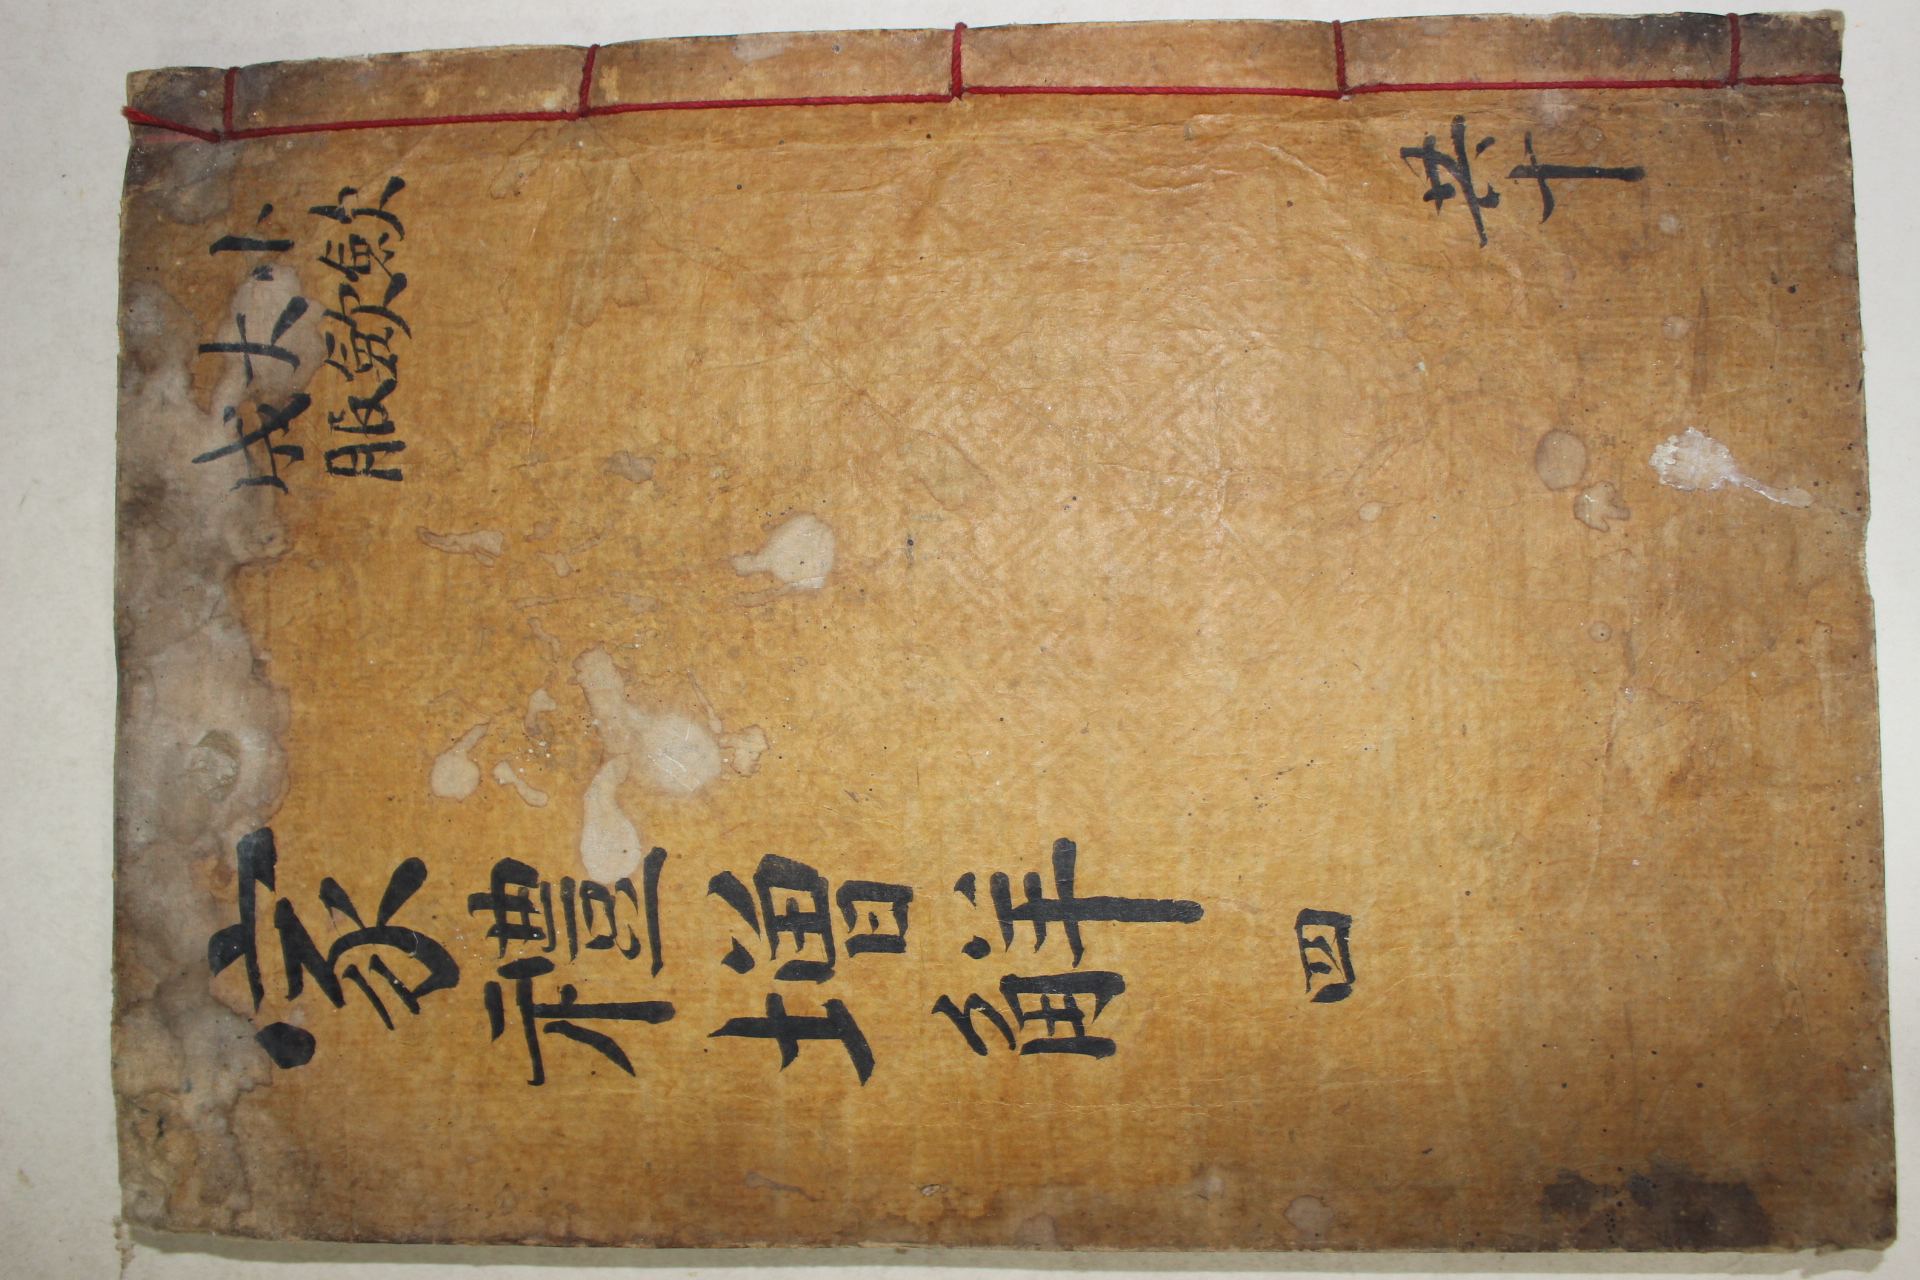 小歛
大歛
成服
家禮增解 四
共十